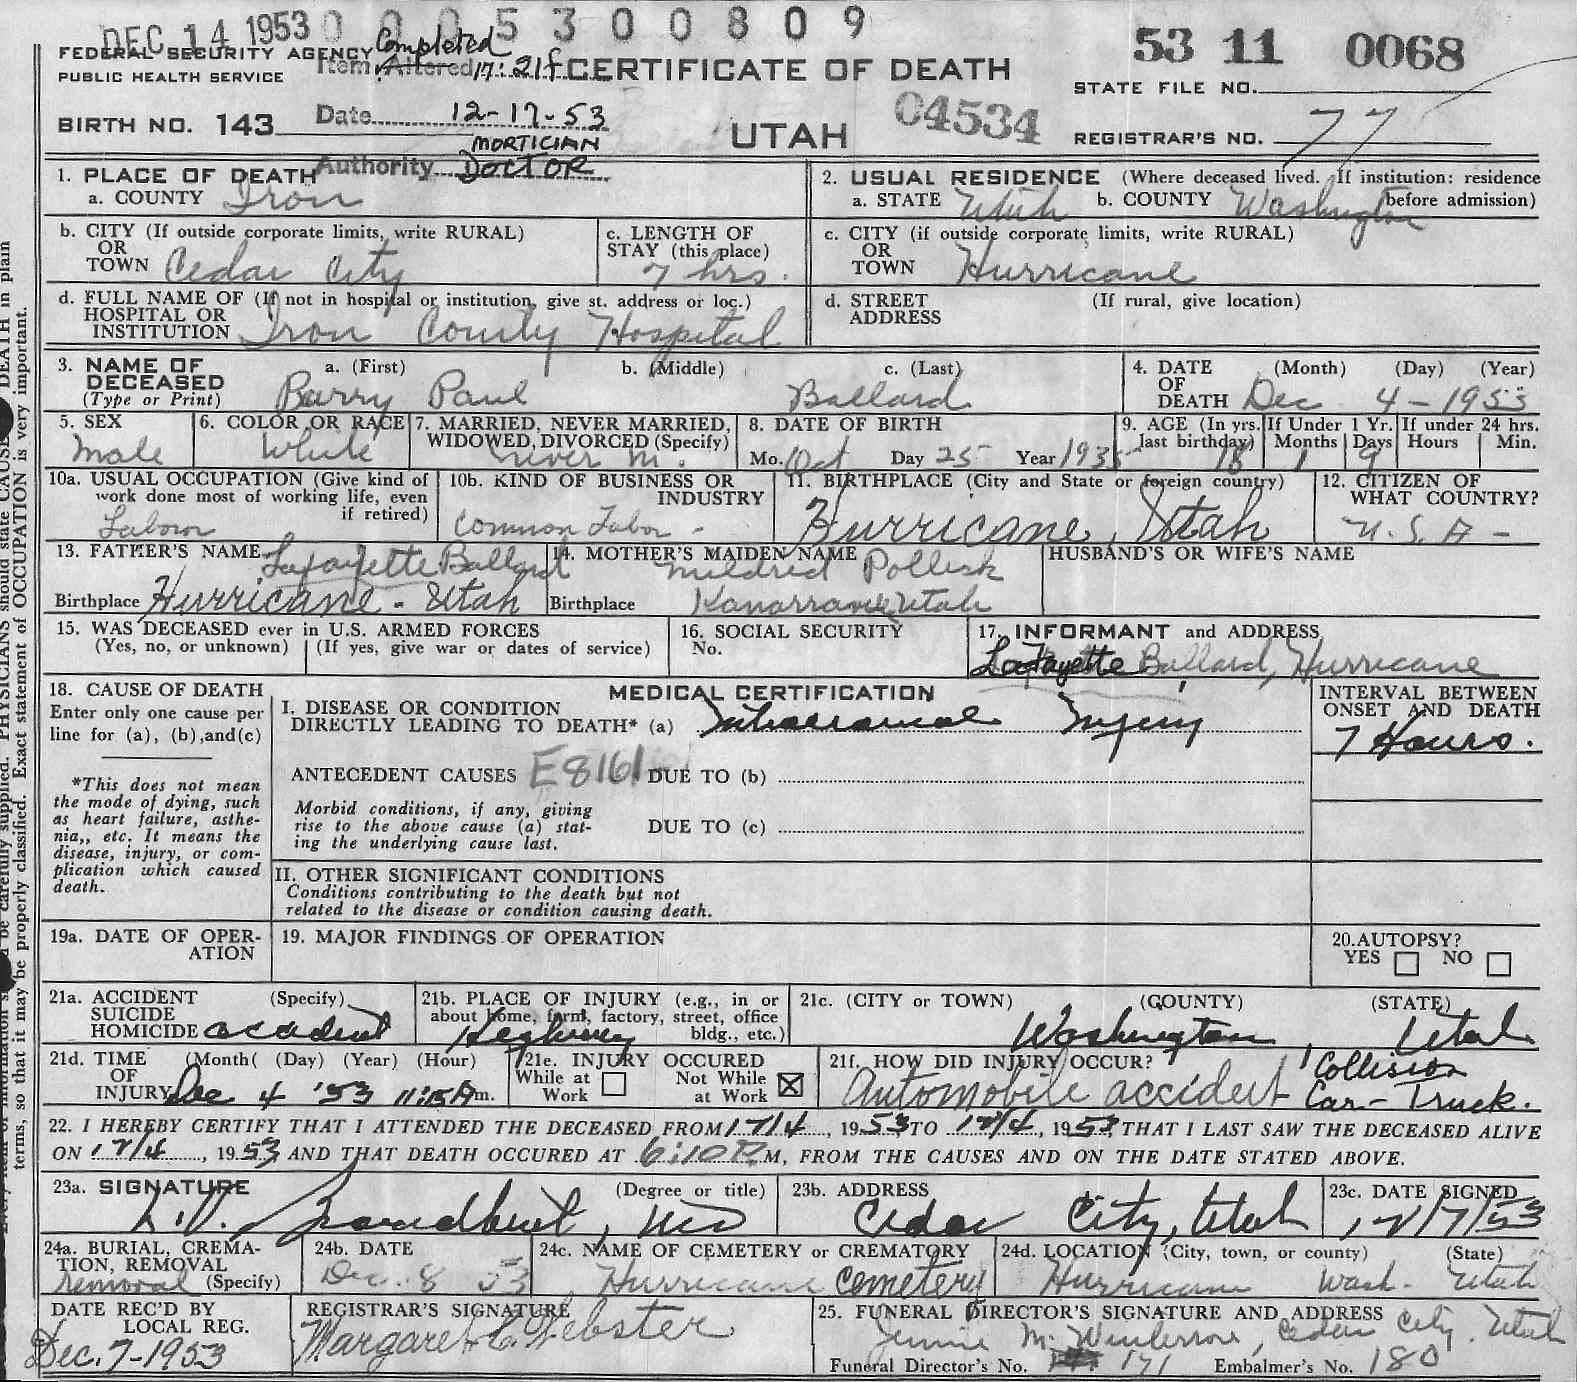 DEC 14 1953 0 0 0 5 3 0 0 8 0 9
53 11 0068
FEDERAL SECURITY AGENCY
PUBLIC HEALTH SERVICE
Completed
Item Altered 17: 21f
CERTIFICATE OF DEATH
STATE FILE NO.
BIRTH NO. 143
Date 12-17-53
UTAH
04534
REGISTRAR'S NO. 77
MORTICIAN
Authority DOCTOR
1. PLACE OF DEATH
a. COUNTY Iron
2. USUAL RESIDENCE (Where deceased lived. If institution: residence before admission)
a. STATE Utah b. COUNTY Washington
b. CITY (If outside corporate limits, write RURAL)
OR
TOWN Cedar City
c. LENGTH OF
STAY (this place)
7 hrs.
c. CITY (if outside corporate limits, write RURAL)
OR
TOWN Hurricane
d. FULL NAME OF (If not in hospital or institution, give st. address or loc.)
HOSPITAL OR
INSTITUTION Iron County Hospital
d. STREET (If rural, give location)
ADDRESS
3. NAME OF
DECEASED
(Type or Print)
a. (First) b. (Middle) c. (Last)
Barry Paul Ballard
4. DATE (Month) (Day) (Year)
OF
DEATH Dec 4 - 1953
5. SEX
Male
6. COLOR OR RACE
White
7. MARRIED, NEVER MARRIED,
WIDOWED, DIVORCED (Specify)
never m.
8. DATE OF BIRTH
Mo. Oct Day 25 Year 1935
9. AGE (In yrs. last birthday) 18
If Under 1 Yr.
Months 1 Days 9
If under 24 hrs.
Hours Min.
10a. USUAL OCCUPATION (Give kind of
work done most of working life, even
if retired)
Labor
10b. KIND OF BUSINESS OR
INDUSTRY
Common Labor -
11. BIRTHPLACE (City and State or foreign country)
Hurricane, Utah
12. CITIZEN OF
WHAT COUNTRY?
U. S. A -
13. FATHER'S NAME Lafayette Ballard
Birthplace Hurricane - Utah
14. MOTHER'S MAIDEN NAME
Mildred
Birthplace Utah
HUSBAND'S OR WIFE'S NAME
15. WAS DECEASED ever in U.S. ARMED FORCES
(Yes, no, or unknown) (If yes, give war or dates of service)
16. SOCIAL SECURITY
No.
17. INFORMANT and ADDRESS
LaFayette Ballard, Hurricane
18. CAUSE OF DEATH
Enter only one cause per
line for (a), (b),and(c)
*This does not mean
the mode of dying, such
as heart failure, asthe-
nia,, etc. It means the
disease, injury, or com-
plication which caused
death.
MEDICAL CERTIFICATION
I. DISEASE OR CONDITION
DIRECTLY LEADING TO DEATH* (a) Intracranial Injury
ANTECEDENT CAUSES E8161 DUE TO (b)
Morbid conditions, if any, giving
rise to the above cause (a) stat-
ing the underlying cause last.
DUE TO (c)
INTERVAL BETWEEN
ONSET AND DEATH
7 Hours.
II. OTHER SIGNIFICANT CONDITIONS
Conditions contributing to the death but not
related to the disease or condition causing death.
19a. DATE OF OPER-
ATION
19. MAJOR FINDINGS OF OPERATION
20. AUTOPSY?
YES NO
21a. ACCIDENT (Specify)
SUICIDE
HOMICIDE accident
21b. PLACE OF INJURY (e.g., in or
about home, farm, factory, street, office
bldg., etc.)
Highway
21c. (CITY or TOWN) (COUNTY) (STATE)
Washington, Utah
21d. TIME (Month( (Day) (Year) (Hour)
OF
INJURY Dec 4 '53 11:15 A m.
21e. INJURY OCCURED
While at Work Not While at Work
21f. HOW DID INJURY OCCUR?
Automobile accident Collision
Car - Truck.
22. I HEREBY CERTIFY THAT I ATTENDED THE DECEASED FROM 12/4, 1953, TO 12/4, 1953, THAT I LAST SAW THE DECEASED ALIVE
ON 12/4, 1953, AND THAT DEATH OCCURED AT 6:10 P.M, FROM THE CAUSES AND ON THE DATE STATED ABOVE.
23a. SIGNATURE (Degree or title)
L.V. Broadbent, MD
23b. ADDRESS
Cedar City, Utah
23c. DATE SIGNED
12/7/53
24a. BURIAL, CREMA-
TION, REMOVAL
Removal (Specify)
24b. DATE
Dec. 8 53
24c. NAME OF CEMETERY or CREMATORY
Hurricane Cemetery
24d. LOCATION (City, town, or county) (State)
Hurricane Wash. Utah
DATE REC'D BY
LOCAL REG.
Dec. 7-1953
REGISTRAR'S SIGNATURE
Margaret C. Webster
25. FUNERAL DIRECTOR'S SIGNATURE AND ADDRESS
Jennie M. Cedar City. Utah
Funeral Director's No. 171 Embalmer's No. 180